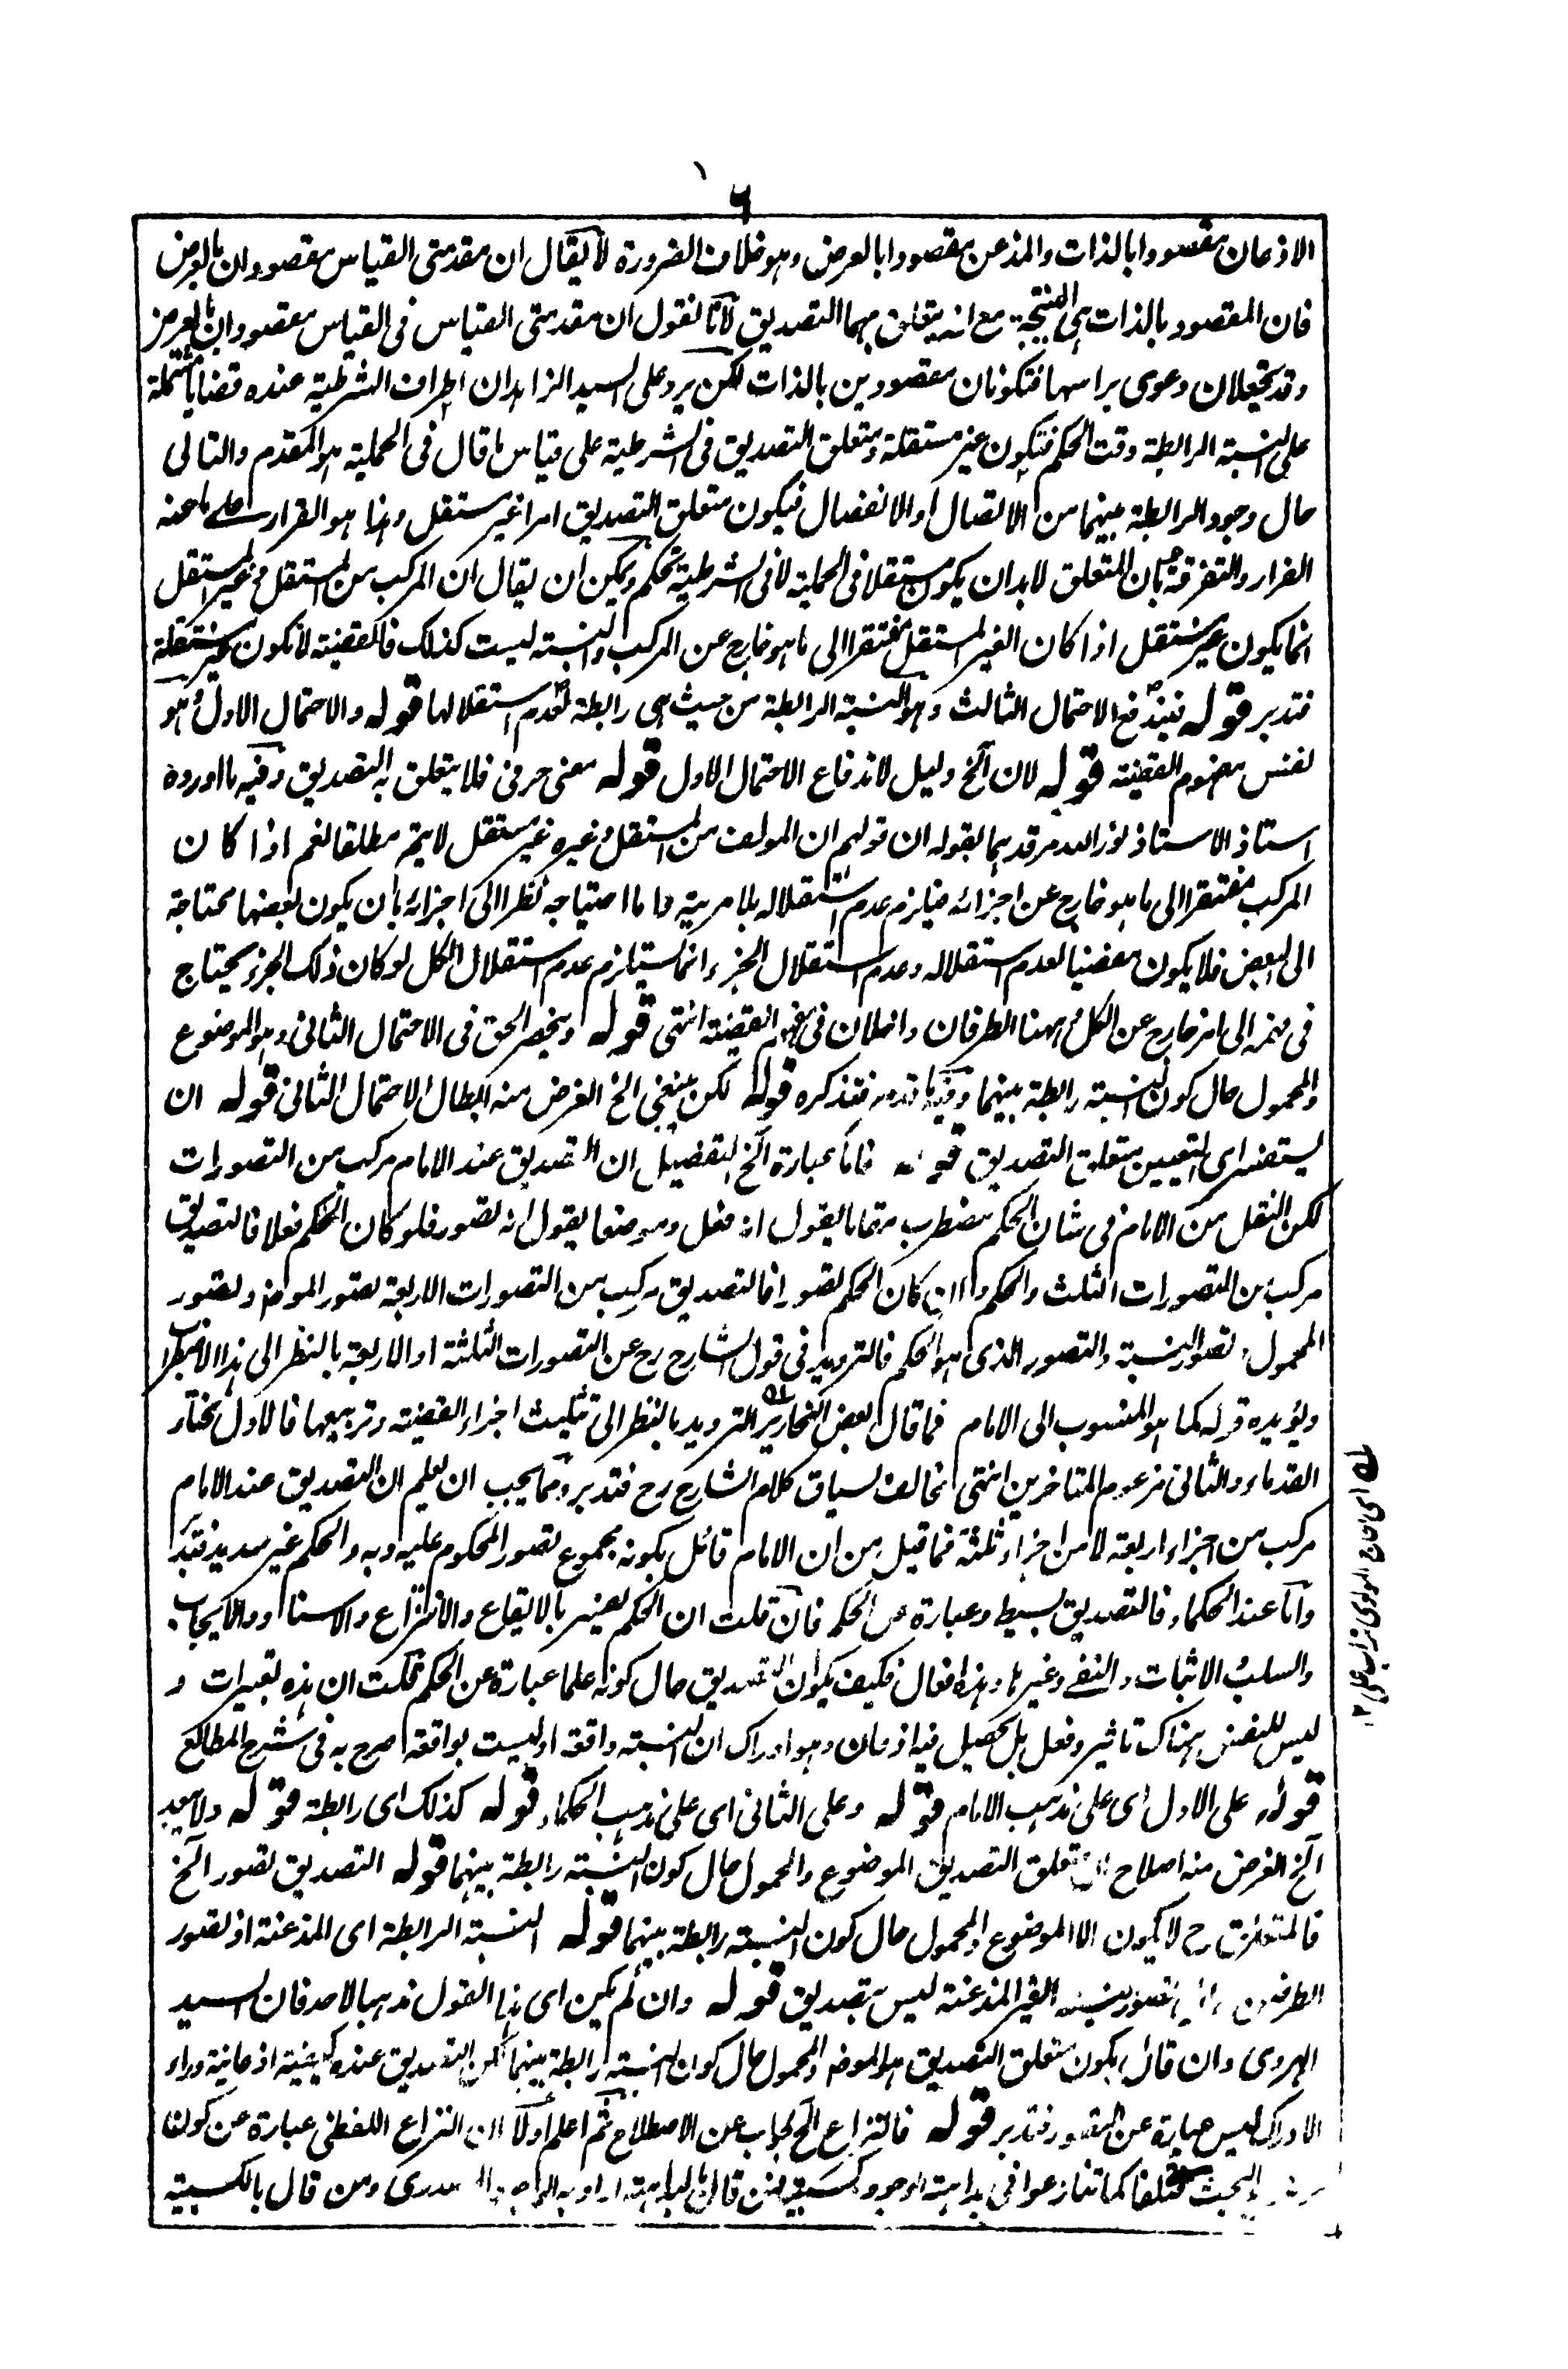 ٦
الاذعان مقصودا بالذات والمذعن مقصودا بالعرض وهو خلاف الضرورة لا يقال ان مقدمتى القياس مقصودان بالعرض
فان المقصود بالذات هى النتيجة مع انه يتعلق بهما التصديق لانا نقول ان مقدمتى القياس فى القياس مقصودان بالعرض
وقد تجعلان دعوى براسها فتكونان مقصودين بالذات لكن يرد على السيد الزاهد ان اطراف الشرطية عنده قضايا مشتملة
على النسبة الرابطة وقت الحكم فتكون غير مستقلة ومتعلق التصديق فى الشرطية على قياس ما قال فى الحملية هو المقدم والتالى
حال وجود الرابطة بينهما من الاتصال او الانفصال فيكون متعلق التصديق امرا غير مستقل وهذا هو القرار على ما عنه
الفرار والتفرقة بان المتعلق لابد ان يكون مستقلا فى الحملية لا فى الشرطية تحكم ويمكن ان يقال ان المركب من المستقل وغير المستقل
انما يكون غير مستقل اذا كان الغير المستقل مفتقرا الى ما هو خارج عن المركب والنسبة ليست كذلك فالقضية لا تكون غير مستقلة
فتدبر قوله فيندفع الاحتمال الثالث وهو النسبة الرابطة من حيث هى رابطة لعدم استقلالها قوله والاحتمال الاول وهو
نفس مفهوم القضية قوله لان آلخ دليل لاندفاع الاحتمال الاول قوله معنى حرفى فلا يتعلق به التصديق وفيه ما اورده
استاذ الاستاذ نور الله مرقدهما بقوله ان قولهم ان المولف من المستقل وغيره غير مستقل لا يتم مطلقا نعم اذا كان
المركب مفتقرا الى ما هو خارج عن اجزائه فيلزم عدم استقلاله بلا مرية واما احتياجه نظرا الى اجزائه بان يكون بعضها محتاجة
الى البعض فلا يكون مفضيا لعدم استقلاله وعدم استقلال الجزء انما يستلزم عدم استقلال الكل لو كان ذلك الجزء يحتاج
فى فهمه الى امر خارج عن الكل وههنا الطرفان داخلان فى مفهوم القضية انتهى قوله وينحصر الحق فى الاحتمال الثانى وهو الموضوع
والمحمول حال كون النسبة رابطة بينهما وفيه ما قدمنا فتذكره قوله لكن ينبغى الخ الغرض منه ابطال الاحتمال الثانى قوله ان
يستفسر اى لتعيين متعلق التصديق قوله فاما عبارة آلخ التفصيل ان التصديق عند الامام مركب من التصورات
لكن النقل من الامام فى شان الحكم مضطرب مقاما يقول انه فعل وموضعا يقول انه تصور فلو كان الحكم فعلا فالتصديق
مركب من التصورات الثلث والحكم واان كان الحكم تصورا فالتصديق مركب من التصورات الاربعة تصور الموضوع وتصور
المحمول وتصور النسبة والتصور الذى هو الحكم فالترديد فى قول الشارح رح عن التصورات الثلثة او الاربعة بالنظر الى هذا الاضطراب
ويؤيده قوله كما هو المنسوب الى الامام فما قال بعض النحارير له الترديد بالنظر الى تثليث اجزاء القضية وتربيعها فالاول مختار
القدماء والثانى مزعوم المتاخرين انتهى مخالف لسياق كلام الشارح رح فتدبر ومما يجب ان يعلم ان التصديق عند الامام
مركب من اجزاء اربعة لا من اجزاء ثلثة فما قيل من ان الامام قائل بكونه مجموع تصور المحكوم عليه وبه والحكم غير سديد فتدبر
واما عند الحكماء فالتصديق بسيط وعبارة عن الحكم فان قلت ان الحكم يفسر بالايقاع والانتزاع والاسناد والايجاب
والسلب والاثبات والنفى وغيرها وهذه افعال فكيف يكون التصديق حال كونه علما عبارة عن الحكم قلت ان هذه تعبيرات و
ليس للنفس هناك تاثير وفعل بل يحصل فيه اذعان وهو ادراك ان النسبة واقعة او ليست بواقعة صرح به فى شرح المطالع
قوله على الاول اى على مذهب الامام قوله وعلى الثانى اى على مذهب الحكماء قوله كذلك اى رابطة قوله ولا يبعد
آلخ الغرض منه اصلاح ان متعلق التصديق الموضوع والمحمول حال كون النسبة رابطة بينهما قوله التصديق تصور آلخ
فالمتعلق رح لا يكون الا الموضوع والمحمول حال كون النسبة رابطة بينهما قوله النسبة الرابطة اى المذعنة اذ تصور
الطرفين تصور نسبة الغير المذعنة ليس بتصديق قوله وان لم يكن اى هذا القول مذهبا لاحد فان السيد
الهروى وان قائل بكون متعلق التصديق هو الموضوع والمحمول حال كون النسبة رابطة بينهما لكن التصديق عنده كيفية اذعانية وراء
الادراك ليس عبارة عن التصور فتدبر قوله فالنزاع آلخ جواب عن الاصطلاح ثم اعلم اولا ان النزاع اللفظى عبارة عن كون
البحث مختلفا كما تنازعوا فى بداهة الوجود وكسبيته فمن قال بالبداهة اراد به المصدرى ومن قال بالكسبية
له اى الحاج المولوى تراب على ١٢